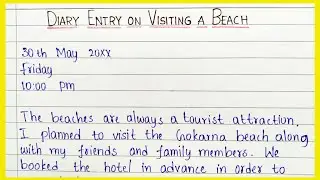 Diary Entry on Visiting a Beach
30th May 20XX
Friday
10:00 Pm
The beaches are always a tourist attraction.
I planned to visit the Gokarna beach along
with my friends and family members. We
booked the hotel in advance in order to